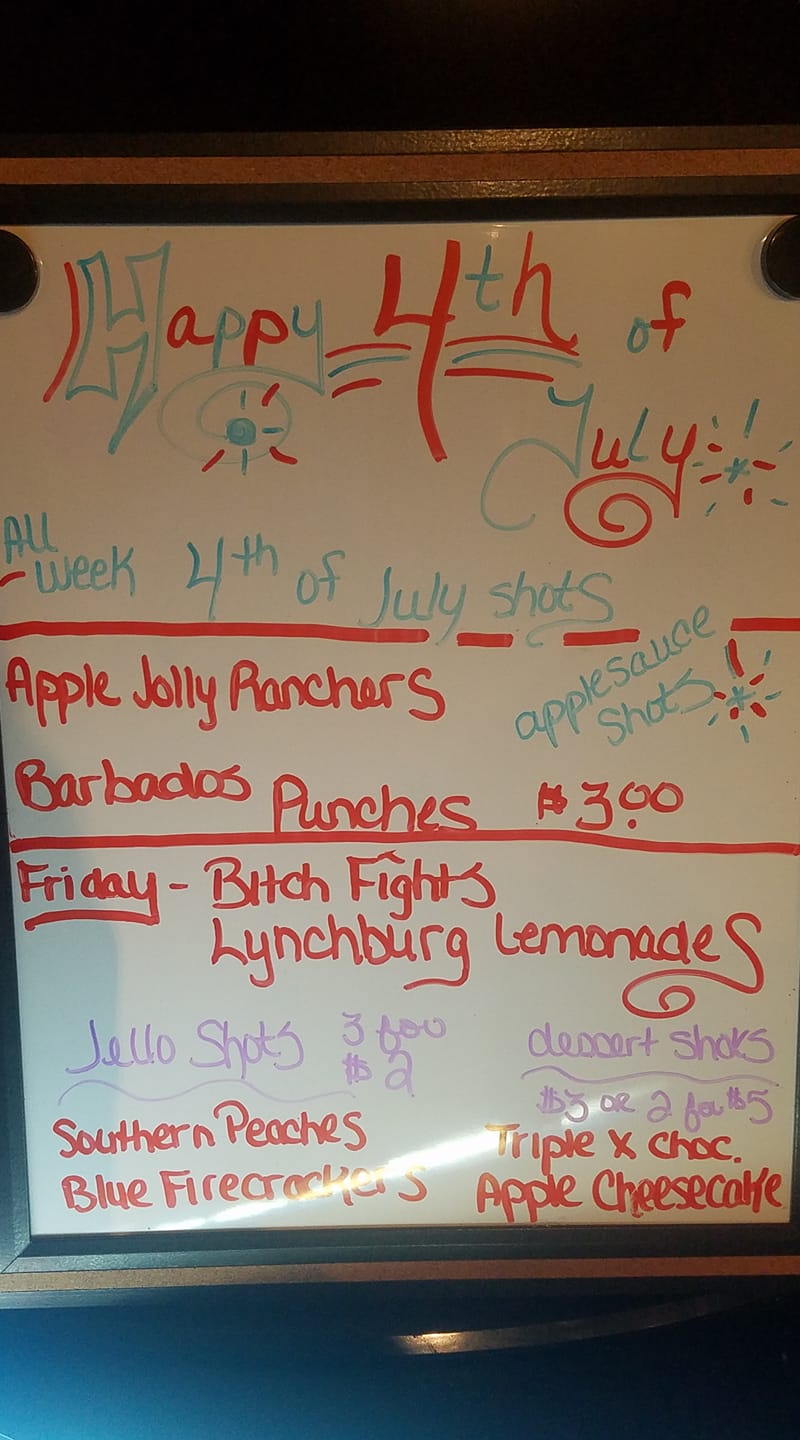 Happy 4th of
July
All
Week 4th of July shots
Apple Jolly Ranchers
applesauce
shots
Barbados Punches $3.00
Friday - Bitch Fights
Lynchburg Lemonades
Jello Shots 3 for
$2
Southern Peaches
Blue Firecrackers
dessert shots
$3 or 2 for $5
Triple X choc.
Apple Cheesecake